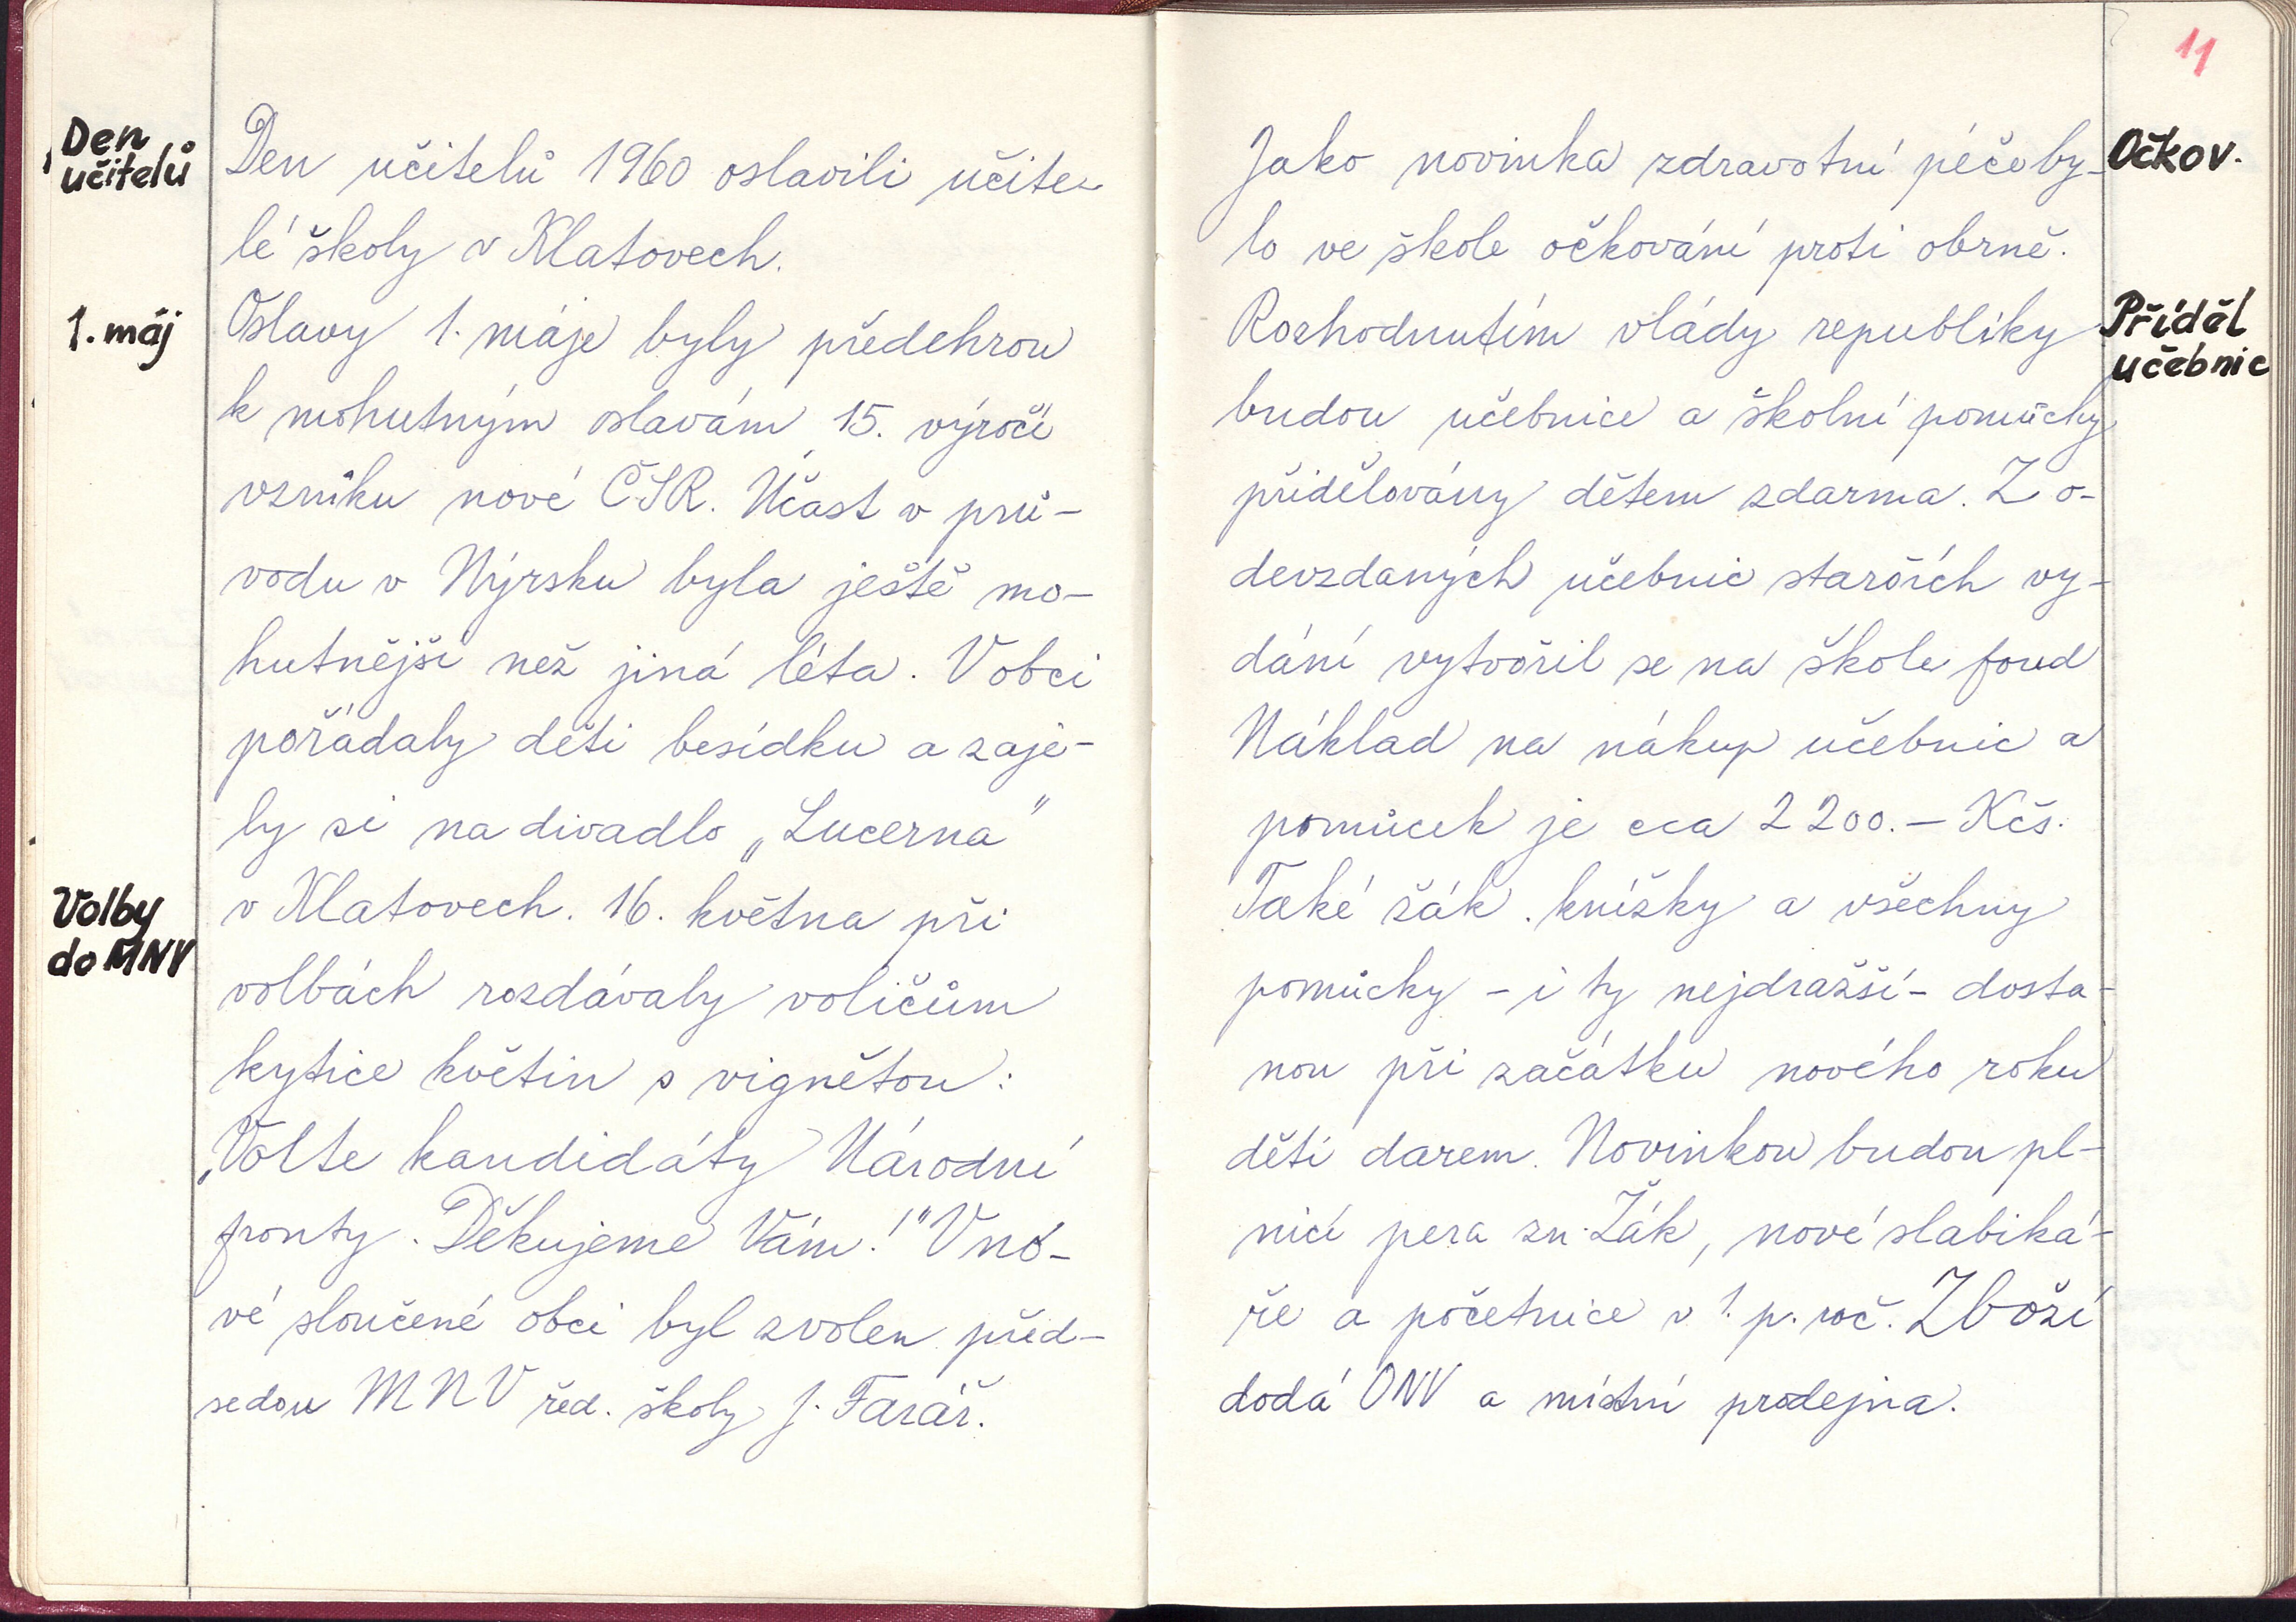 Den
učitelů
Den učitelů 1960 oslavili učite-
lé školy v Klatovech.
1. máj
Oslavy 1. máje byly předehrou
k mohutným oslavám 15. výročí
vzniku nové ČSR. Účast v prů-
vodu v Nýrsku byla ještě mo-
hutnější než jiná léta. V obci
pořádaly děti besídku a zaje-
ly si na divadlo „Lucerna"
Volby
do MNV
v Klatovech. 16. května při
volbách rozdávaly voličům
kytice květin s vignětou:
„Volte kandidáty Národní
fronty. Děkujeme Vám!" V no-
vé sloučené obci byl zvolen před-
sedou MNV řed. školy J. Farář.
11
Očkov.
Jako novinka zdravotní péče by-
lo ve škole očkování proti obrně.
Příděl
učebnic
Rozhodnutím vlády republiky
budou učebnice a školní pomůcky
přidělovány dětem zdarma. Z o-
devzdaných učebnic starších vy-
dání vytvořil se na škole fond
Náklad na nákup učebnic a
pomůcek je cca 2 200.- Kčs.
Také žák. knížky a všechny
pomůcky - i ty nejdražší - dosta-
nou při začátku nového roku
děti darem. Novinkou budou pl-
nící pera zn. Žák, nové slabiká-
ře a početnice v 1. p. roč. Zboží
dodá ONV a místní prodejna.